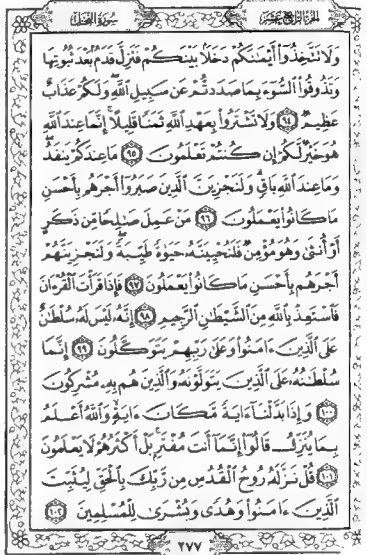 الجزء الرابع عشر
سورة النحل
وَلَا تَتَّخِذُوٓا۟ أَيْمَٰنَكُمْ دَخَلًۢا بَيْنَكُمْ فَتَزِلَّ قَدَمٌۢ بَعْدَ ثُبُوتِهَا
وَتَذُوقُوا۟ ٱلسُّوٓءَ بِمَا صَدَدتُّمْ عَن سَبِيلِ ٱللَّهِ ۖ وَلَكُمْ عَذَابٌ
عَظِيمٌ ﴿٩٤﴾ وَلَا تَشْتَرُوا۟ بِعَهْدِ ٱللَّهِ ثَمَنًا قَلِيلًا ۚ إِنَّمَا عِندَ ٱللَّهِ
هُوَ خَيْرٌ لَّكُمْ إِن كُنتُمْ تَعْلَمُونَ ﴿٩٥﴾ مَا عِندَكُمْ يَنفَدُ ۖ
وَمَا عِندَ ٱللَّهِ بَاقٍ ۗ وَلَنَجْزِيَنَّ ٱلَّذِينَ صَبَرُوٓا۟ أَجْرَهُم بِأَحْسَنِ
مَا كَانُوا۟ يَعْمَلُونَ ﴿٩٦﴾ مَنْ عَمِلَ صَٰلِحًا مِّن ذَكَرٍ
أَوْ أُنثَىٰ وَهُوَ مُؤْمِنٌ فَلَنُحْيِيَنَّهُۥ حَيَوٰةً طَيِّبَةً ۖ وَلَنَجْزِيَنَّهُمْ
أَجْرَهُم بِأَحْسَنِ مَا كَانُوا۟ يَعْمَلُونَ ﴿٩٧﴾ فَإِذَا قَرَأْتَ ٱلْقُرْءَانَ
فَٱسْتَعِذْ بِٱللَّهِ مِنَ ٱلشَّيْطَٰنِ ٱلرَّجِيمِ ﴿٩٨﴾ إِنَّهُۥ لَيْسَ لَهُۥ سُلْطَٰنٌ
عَلَى ٱلَّذِينَ ءَامَنُوا۟ وَعَلَىٰ رَبِّهِمْ يَتَوَكَّلُونَ ﴿٩٩﴾ إِنَّمَا
سُلْطَٰنُهُۥ عَلَى ٱلَّذِينَ يَتَوَلَّوْنَهُۥ وَٱلَّذِينَ هُم بِهِۦ مُشْرِكُونَ
﴿١٠٠﴾ وَإِذَا بَدَّلْنَآ ءَايَةً مَّكَانَ ءَايَةٍ ۙ وَٱللَّهُ أَعْلَمُ
بِمَا يُنَزِّلُ قَالُوٓا۟ إِنَّمَآ أَنتَ مُفْتَرٍۭ ۚ بَلْ أَكْثَرُهُمْ لَا يَعْلَمُونَ
﴿١٠١﴾ قُلْ نَزَّلَهُۥ رُوحُ ٱلْقُدُسِ مِن رَّبِّكَ بِٱلْحَقِّ لِيُثَبِّتَ
ٱلَّذِينَ ءَامَنُوا۟ وَهُدًى وَبُشْرَىٰ لِلْمُسْلِمِينَ ﴿١٠٢﴾
٢٧٧